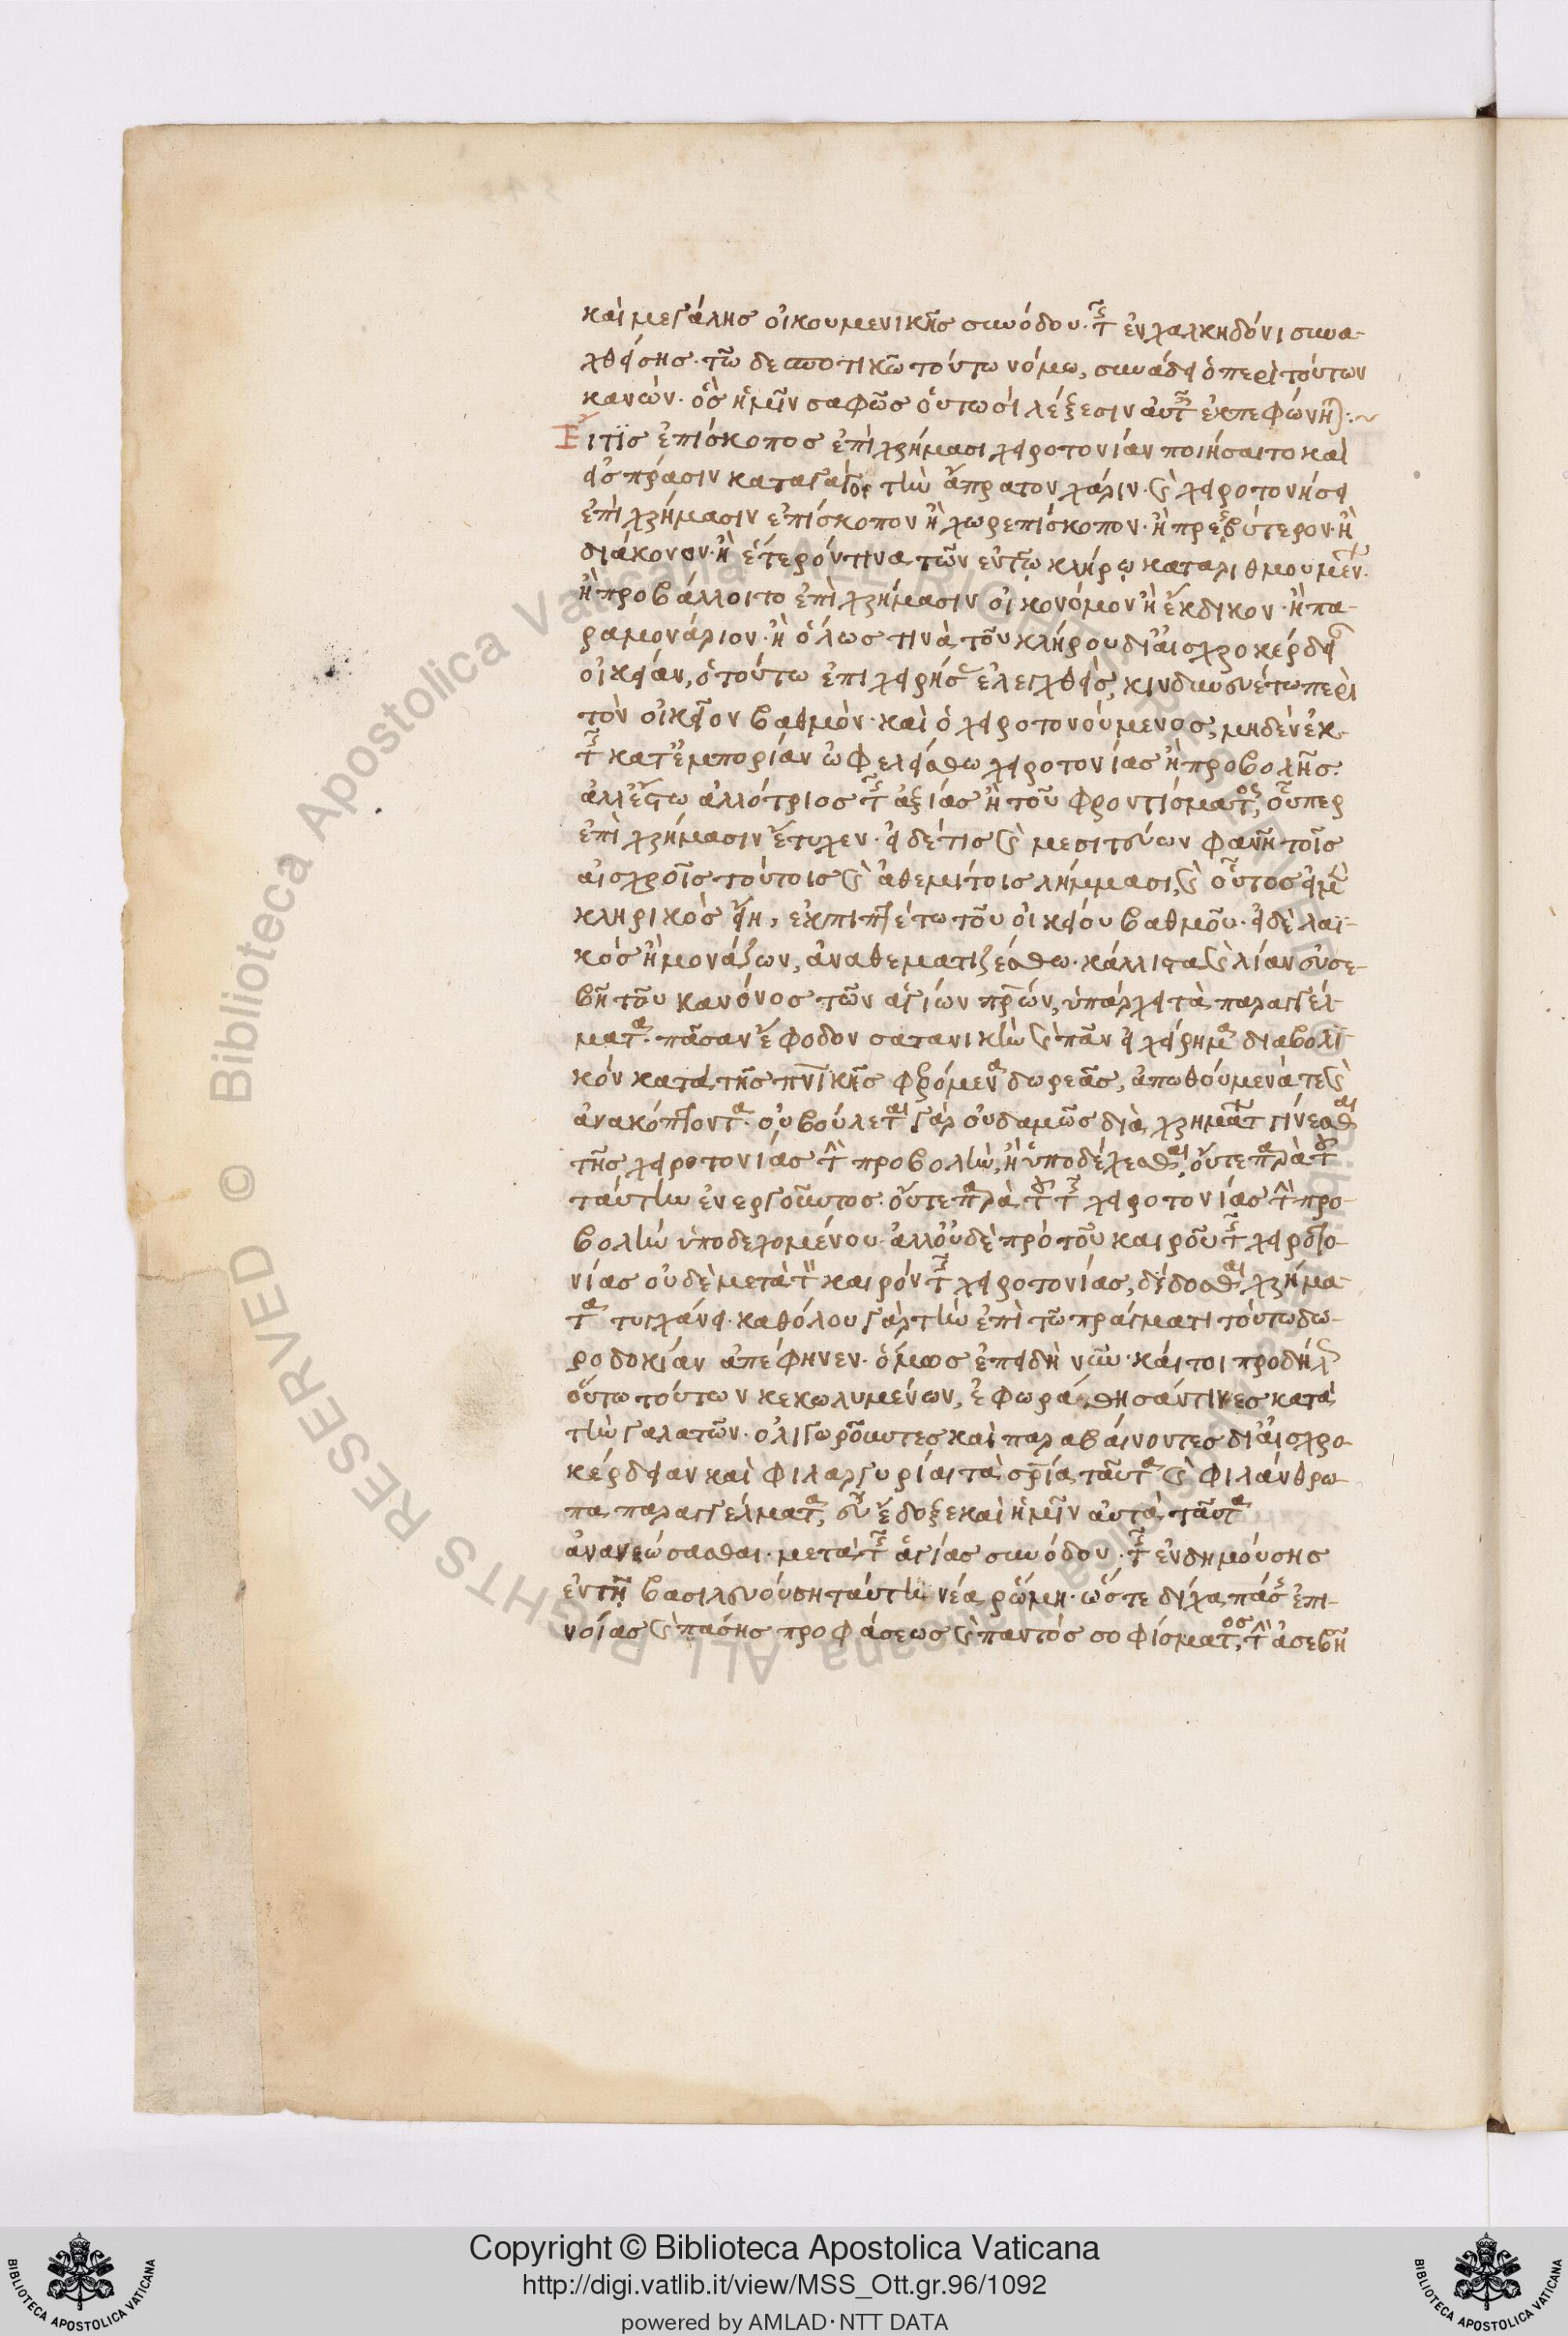 καὶ μεγάλης οἰκουμενικῆς συνόδου· τῆς ἐν χαλκηδόνι συνα-
χθείσης· τῶ δεσποτικῶ τούτω νόμω, συνάδει ὁ περὶ τούτων
κανών· ὃς ἡμῖν σαφῶς οὑτωσὶ λέξεσιν αὐταῖς ἐκπεφώνηται:~
Εἴ τις ἐπίσκοπος ἐπὶ χρήμασι χειροτονίαν ποιήσαιτο καὶ
εἰς πράσιν καταγάγοι τὴν ἄπρατον χάριν· καὶ χειροτονήσει
ἐπὶ χρήμασιν ἐπίσκοπον ἢ χωρεπίσκοπον· ἢ πρεσβύτερον· ἢ
διάκονον· ἢ ἕτερόν τινα τῶν ἐν τῶ κλήρω καταριθμουμένων·
ἢ προβάλλοιτο ἐπὶ χρήμασιν οἰκονόμον ἢ ἔκδικον· ἢ πα-
ραμονάριον· ἢ ὅλως τινὰ τοῦ κλήρου δι' αἰσχροκέρδειαν
οἰκείαν, ὁ τούτω ἐπιχειρήσας ἐλεγχθεὶς, κινδυνευέτω περὶ
τὸν οἰκεῖον βαθμὸν· καὶ ὁ χειροτονούμενος, μηδὲν ἐκ
τῆς κατ' ἐμπορίαν ὠφελείσθω χειροτονίας ἢ προβολῆς·
ἀλλ' ἔστω ἀλλότριος τῆς ἀξίας ἢ τοῦ φροντίσματος, οὗπερ
ἐπὶ χρήμασιν ἔτυχεν· εἰ δέ τις καὶ μεσιτεύων φανῆ τοῖς
αἰσχροῖς τούτοις καὶ ἀθεμίτοις λήμμασι, καὶ οὗτος εἰ μὲν
κληρικὸς εἴη, ἐκπιπτέτω τοῦ οἰκείου βαθμοῦ· εἰ δὲ λαϊ-
κὸς ἢ μονάζων, ἀναθεματιζέσθω· κάλλιστα καὶ λίαν εὐσε-
βῆ τοῦ κανόνος τῶν ἁγίων πρων, ὑπάρχει τὰ παραγγέλ-
ματα· πᾶσαν ἔφοδον σατανικὴν καὶ πᾶν ἐγχείρημα διαβολι-
κὸν κατὰ τῆς πνικῆς φερόμενα δωρεᾶς, ἀπωθούμενά τε καὶ
ἀνακόπτοντα· οὐ βούλεται γὰρ οὐδαμῶς διὰ χρημάτων γίνεσθαι
τῆς χειροτονίας τὴν προβολὴν, ἢ ὑποδέχεσθαι, οὔτε παρὰ τοῦ
ταύτην ἐνεργοῦντος· οὔτε παρὰ τοῦ τῆς χειροτονίας τὴν προ-
βολὴν ὑποδεχομένου· ἀλλ' οὐδὲ πρὸ τοῦ καιροῦ τῆς χειροτο-
νίας οὐδὲ μετὰ τὸν καιρὸν τῆς χειροτονίας, δίδοσθαι χρήμα-
τα τυγχάνει· καθόλου γὰρ τὴν ἐπὶ τῶ πράγματι τούτω δω-
ροδοκίαν ἀπέφηνεν· ὅμως ἐπειδὴ νῦν· καίτοι προδήλως
οὕτω τούτων κεκωλυμένων, ἐφωράθησάν τινες κατὰ
τὴν γαλατῶν· ὀλιγωροῦντες καὶ παραβαίνοντες δι' αἰσχρο
κέρδειαν καὶ φιλαργυρίαν τὰ σρία ταῦτα καὶ φιλάνθρω
πα παραγγέλματα, εὖ ἔδοξε καὶ ἡμῖν αὐτὰ ταῦτα
ἀνανεώσασθαι· μετὰ τῆς ἁγίας συνόδου· τῆς ἐνδημούσης
ἐν τῆ βασιλευούση ταύτη νέα ῥώμη· ὥστε δίχα πάσης ἐπι-
νοίας καὶ πάσης προφάσεως καὶ παντὸς σοφίσματος, τὴν ἀσεβῆ
Copyright © Biblioteca Apostolica Vaticana
http://digi.vatlib.it/view/MSS_Ott.gr.96/1092
powered by AMLAD·NTT DATA